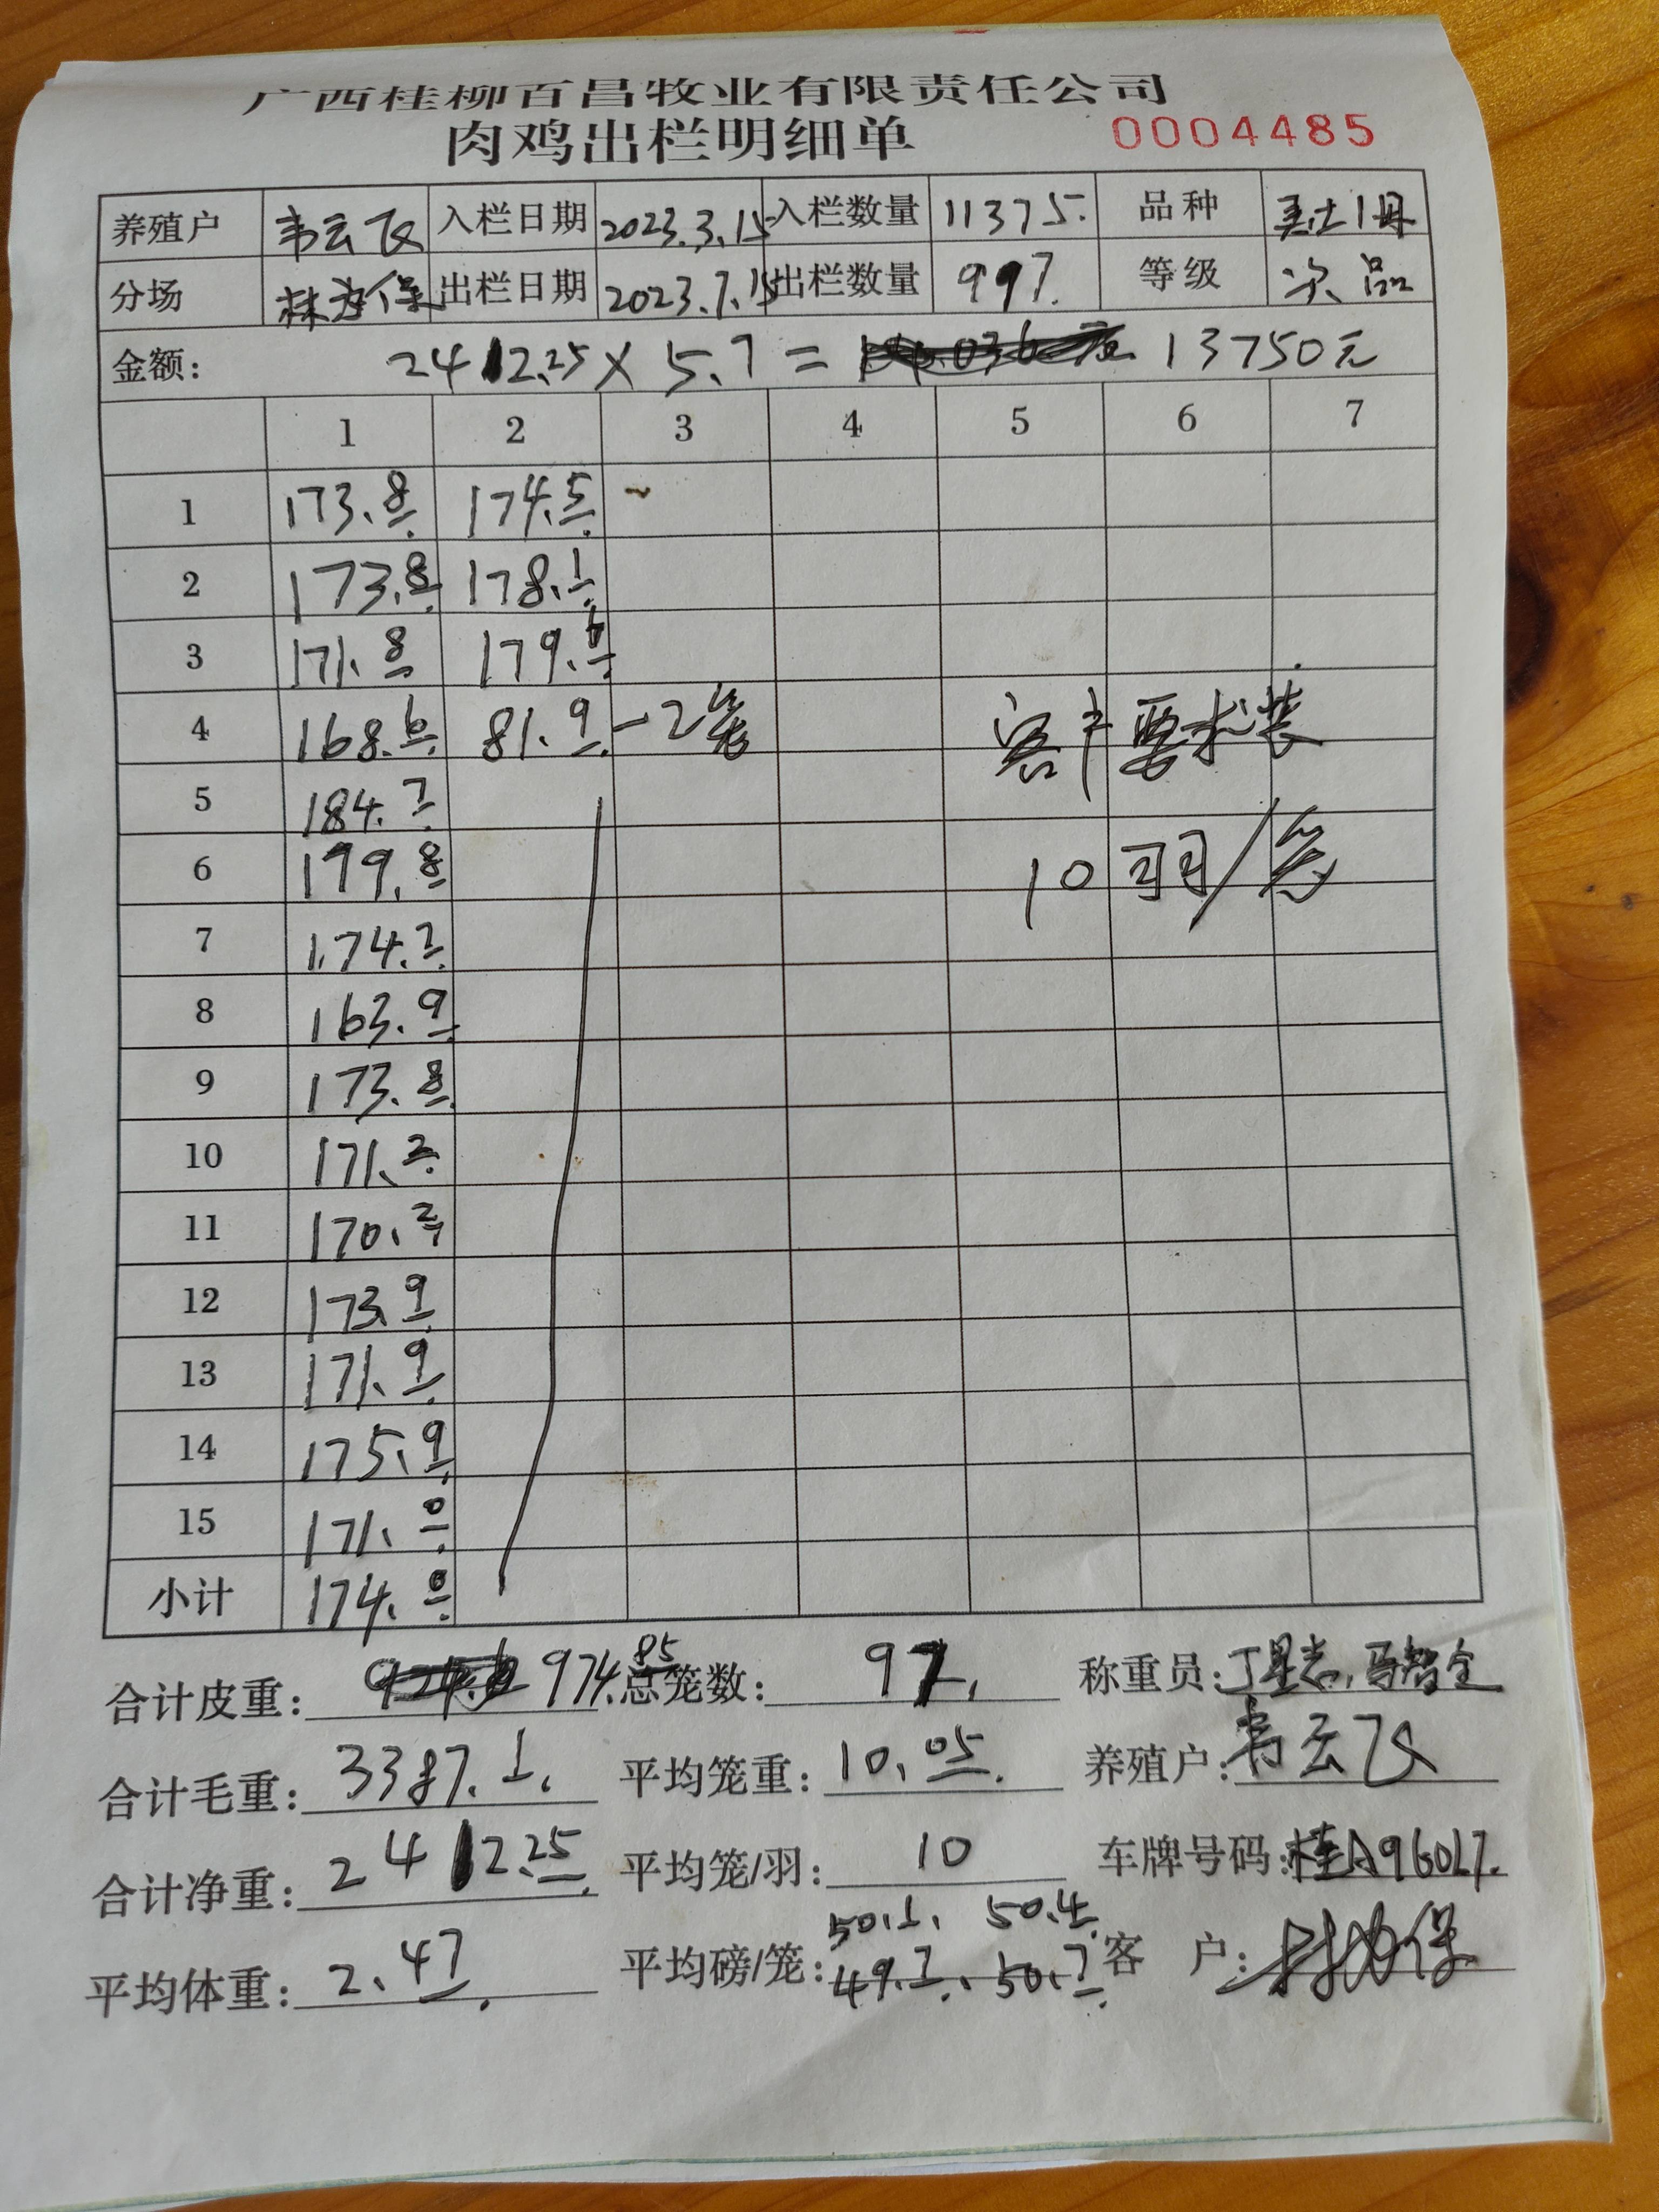 广西桂柳百昌牧业有限责任公司
肉鸡出栏明细单 0004485
养殖户 韦云飞 入栏日期 2023.3.15 入栏数量 11375. 品种
分场 出栏日期 2023.7.15 出栏数量 997. 等级 次品
金额: 2412.25 × 5.7 = 13750元
1 2 3 4 5 6 7
1 173.8 174.5
2 173.8 178.1
3 171.8 179.6
4 168.6 81.9 -2笼 客户要求装
5 184.7
6 199.8 10羽/笼
7 174.7
8 163.9
9 173.8
10 171.2
11 170.2
12 173.9
13 171.9
14 175.9
15 171.0
小计 174.0
合计皮重: 974.85 总笼数: 97. 称重员:
合计毛重: 3387.1. 平均笼重: 10.05. 养殖户: 韦云飞
合计净重: 2412.25. 平均笼/羽: 10 车牌号码: 桂A96017.
50.1. 50.4.
平均体重: 2.47. 平均磅/笼: 49.7. 50.7. 客 户: